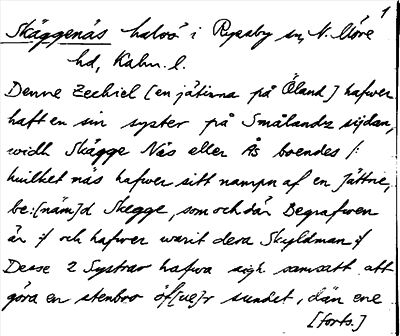 1
Skäggenäs halvö i Ryssby sn, N. Möre
hd, Kalm. l.
Denne Zechiel [en jätinna på Öland] hafwer
haft en sin syster på Smålandz sijdan,
widh Skägge Näs eller Ås boendes /:
huilket näs hafwer sitt nampn af en Jättne,
be:[näm]d Skegge, som och där Begrafwen
är :/ och hafwer warit dera Skyldman :/
Desse 2 Systrar hafwa sigh samsatt att
göra en stenbro öf[ue]r sundet, dän ene
[forts.]